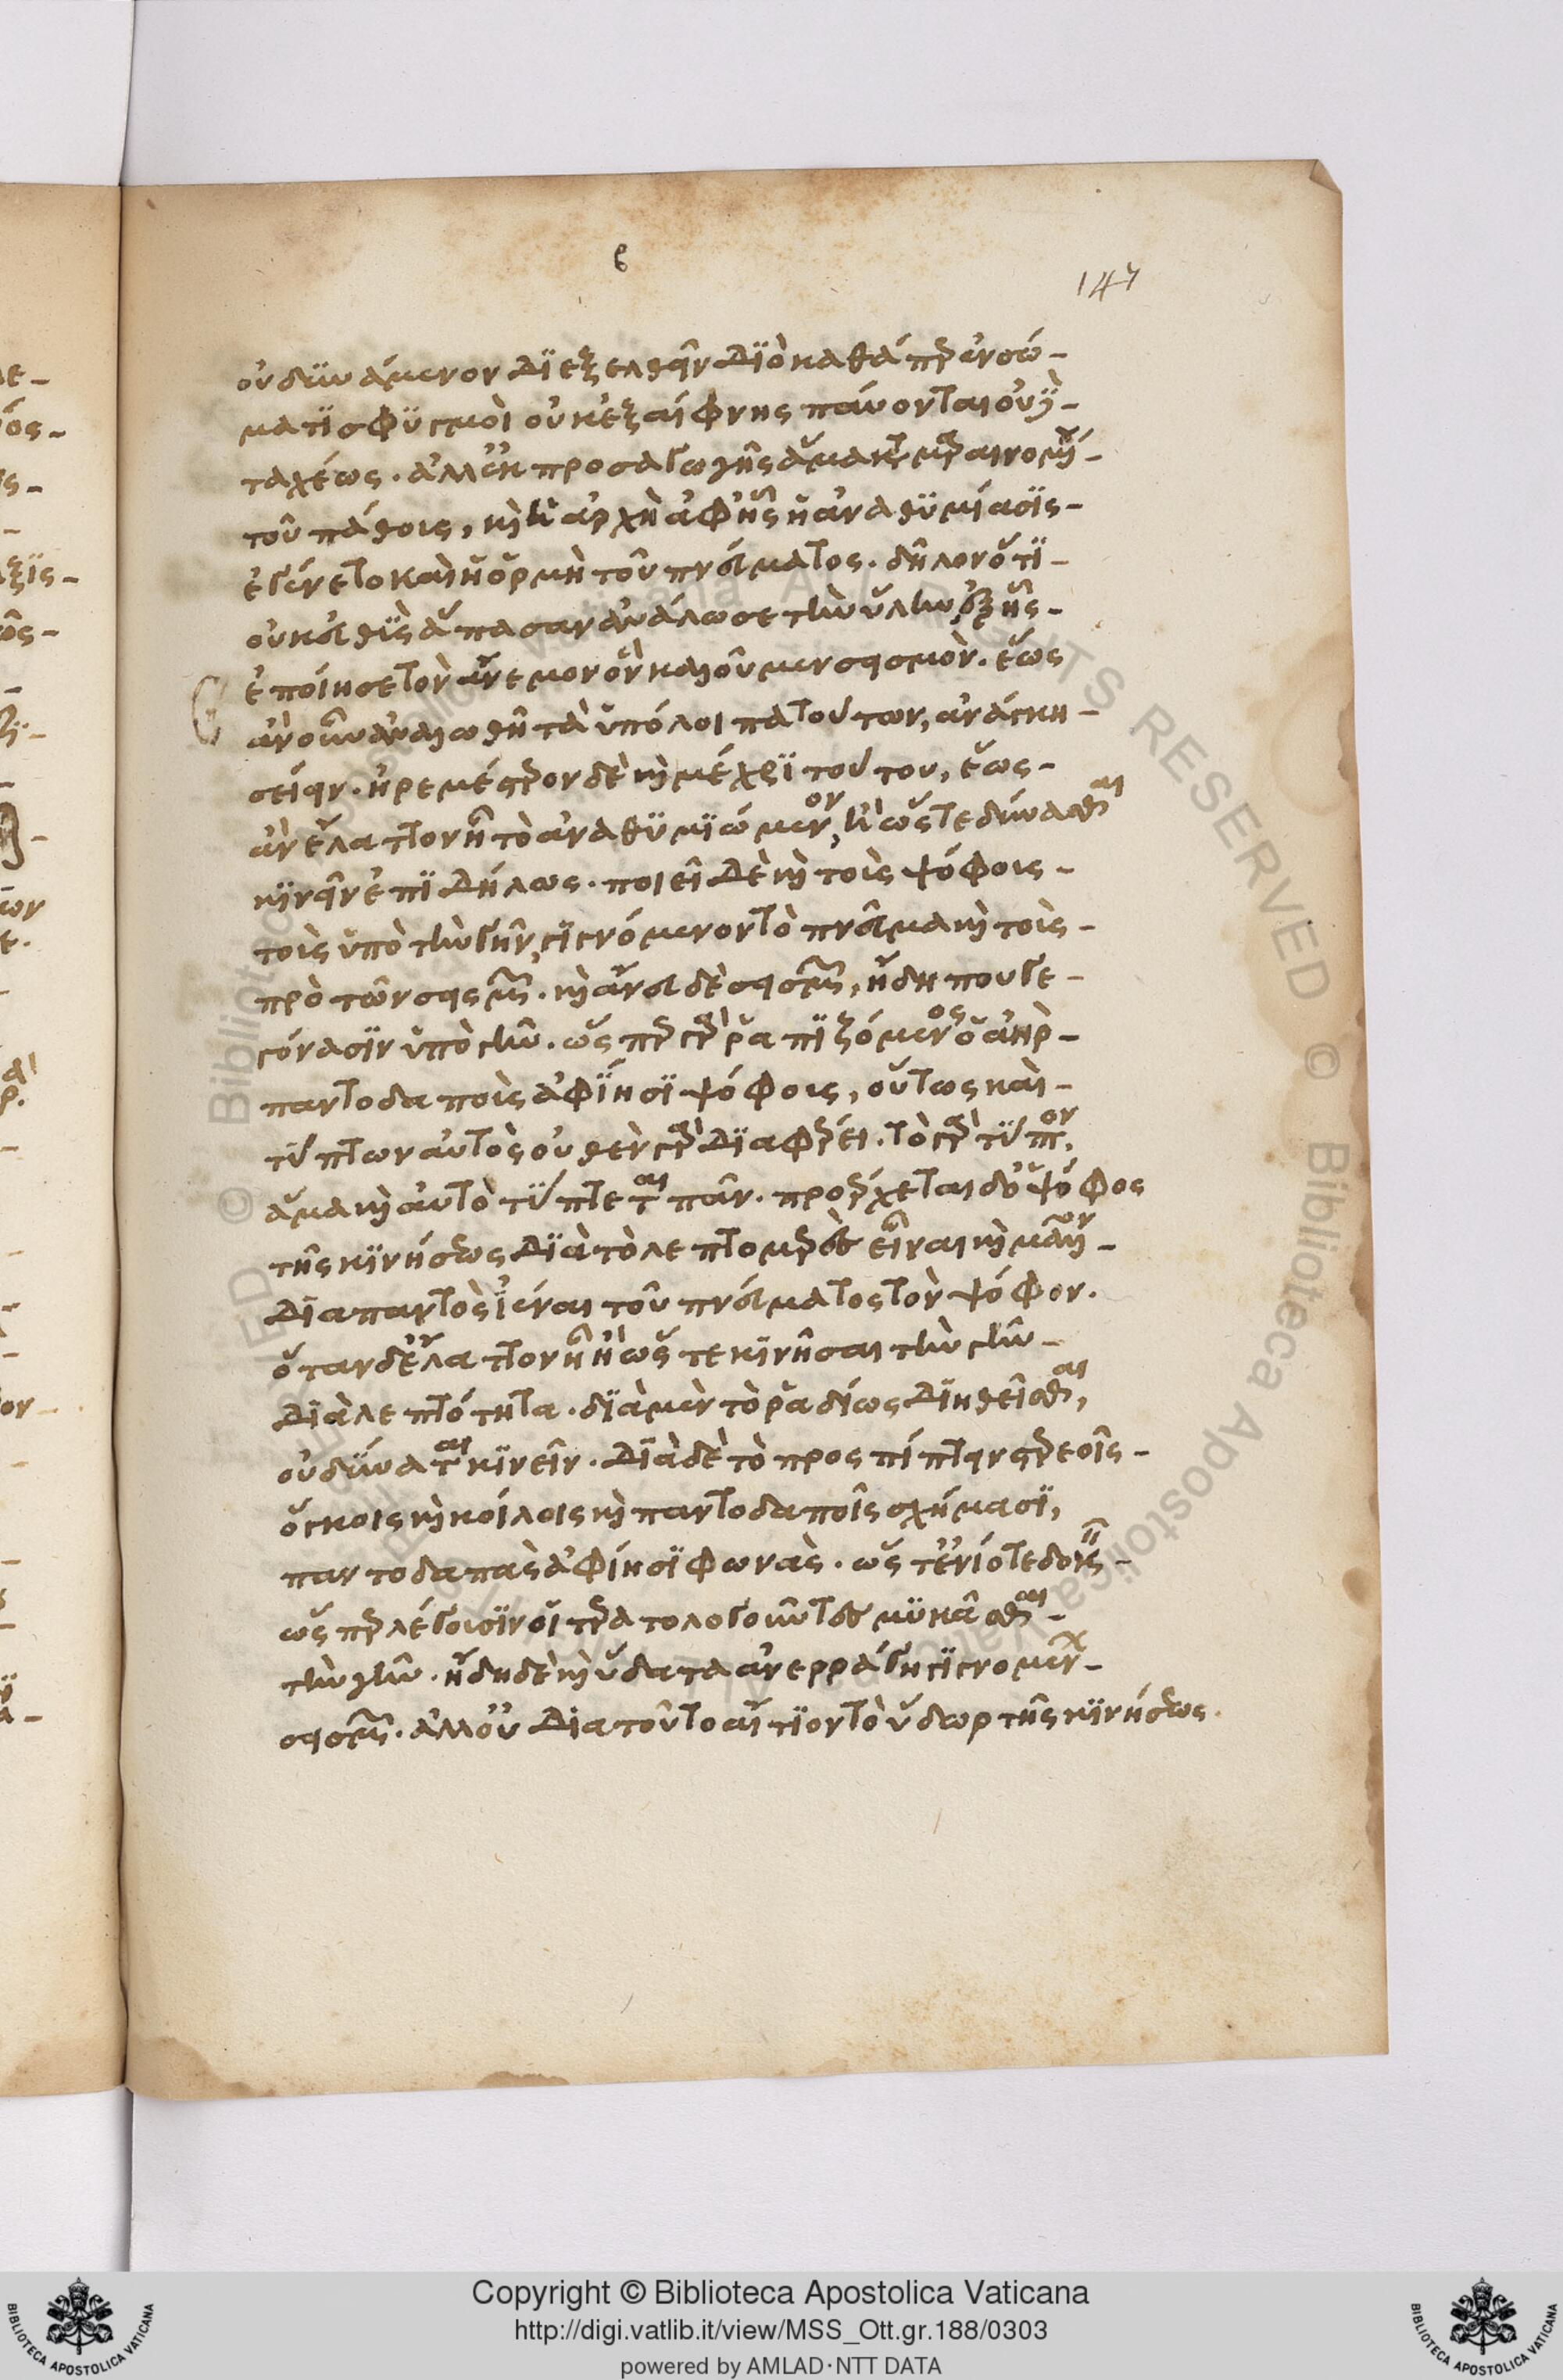 β
147
οὐ δυνάμενον διεξελθεῖν διὸ καθάπερ ἐν σώ-
ματι σφυγμοὶ οὐκ ἐξαίφνης παύονται οὐδὲ
ταχέως. ἀλλ' ἐκ προσαγωγῆς ἅμα καταμαραινομένου
τοῦ πάθους, καὶ ἡ ἀρχὴ ἀφ' ἧς ἡ ἀναθυμίασις-
ἐγένετο καὶ ἡ ὁρμὴ τοῦ πνεύματος. δηλονότι-
οὐκ εὐθὺς ἅπασαν ἀνάλωσε τὴν ὕλην ἐξ ἧς-
ἐποίησε τὸν ἄνεμον ὃν καλοῦμεν σεισμὸν. ἕως
ἂν οὖν ἀναλωθῆ τὰ ὑπόλοιπα τούτων, ἀνάγκη-
σείειν. ἠρεμέστερον δὲ καὶ μέχρι τούτου, ἕως-
ἂν ἔλαττον ἦ τὸ ἀναθυμιώμενον, ἢ ὥστε δύνασθαι
κινεῖν ἐπιδήλως. ποιεῖ δὲ καὶ τοὺς ψόφους-
τοὺς ὑπὸ τὴν γῆν, γινόμενον τὸ πνεῦμα καὶ τοὺς-
πρὸ τῶν σεισμῶν. καὶ ἄνευ δὲ σεισμῶν, ἤδη που γε-
γόνασιν ὑπὸ γῆν. ὥσπερ γὰρ ῥαπιζόμενος ὁ ἀὴρ-
παντοδαποὺς ἀφίησι ψόφους, οὕτως καὶ-
τύπτων αὐτὸς οὐθὲν γὰρ διαφέρει. τὸ γὰρ τύπτον,
ἅμα καὶ αὐτὸ τύπτεται πᾶν. προέρχεται δ' ὁ ψόφος
τῆς κινήσεως διὰ τὸ λεπτομερὲς εἶναι καὶ μᾶλλον-
διαπαντὸς ἰέναι τοῦ πνεύματος τὸν ψόφον.
ὅταν δ' ἔλαττον ἦ ἢ ὥστε κινῆσαι τὴν γῆν-
διὰ λεπτότητα. διὰ μὲν τὸ ῥαδίως διηθεῖσθαι,
οὐ δύναται κινεῖν. διὰ δὲ τὸ προσπίπτειν στερεοῖς-
ὄγκοις καὶ κοίλοις καὶ παντοδαποῖς σχήμασι,
παντοδαπὰς ἀφίησι φωνὰς. ὥστ' ἐνίοτε δοκεῖν-
ὥσπερ λέγουσιν οἱ τερατολογοῦντες μυκᾶσθαι-
τὴν γῆν. ἤδη δὲ καὶ ὕδατα ἀνερράγη γινομένων-
σεισμῶν. ἀλλ' οὐ διατοῦτο αἴτιον τὸ ὕδωρ τῆς κινήσεως.
Copyright © Biblioteca Apostolica Vaticana
http://digi.vatlib.it/view/MSS_Ott.gr.188/0303
powered by AMLAD·NTT DATA